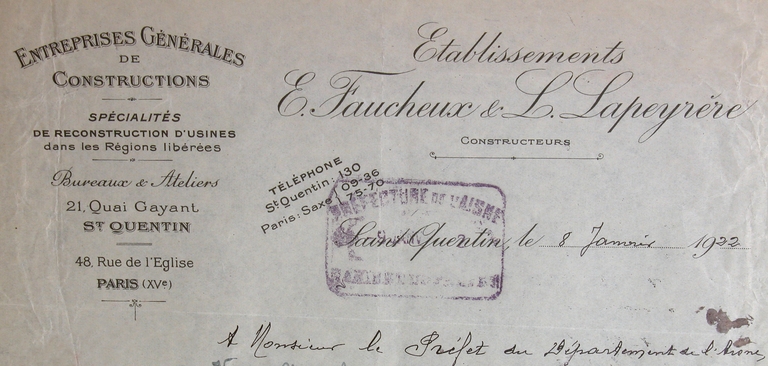 ENTREPRISES GÉNÉRALES
DE
CONSTRUCTIONS
SPÉCIALITÉS
DE RECONSTRUCTION D'USINES
dans les Régions libérées
Bureaux & Ateliers
21, Quai Gayant
ST QUENTIN
48, Rue de l'Eglise
PARIS (XVe)
Etablissements
E. Faucheux & L. Lapeyrère
CONSTRUCTEURS
TÉLÉPHONE
St Quentin: 130
Paris: Saxe 09-36
75-70
PRÉFECTURE DE L'AISNE
Saint Quentin, le 8 Janvier 1922
A Monsieur le Préfet du Département de l'Aisne,